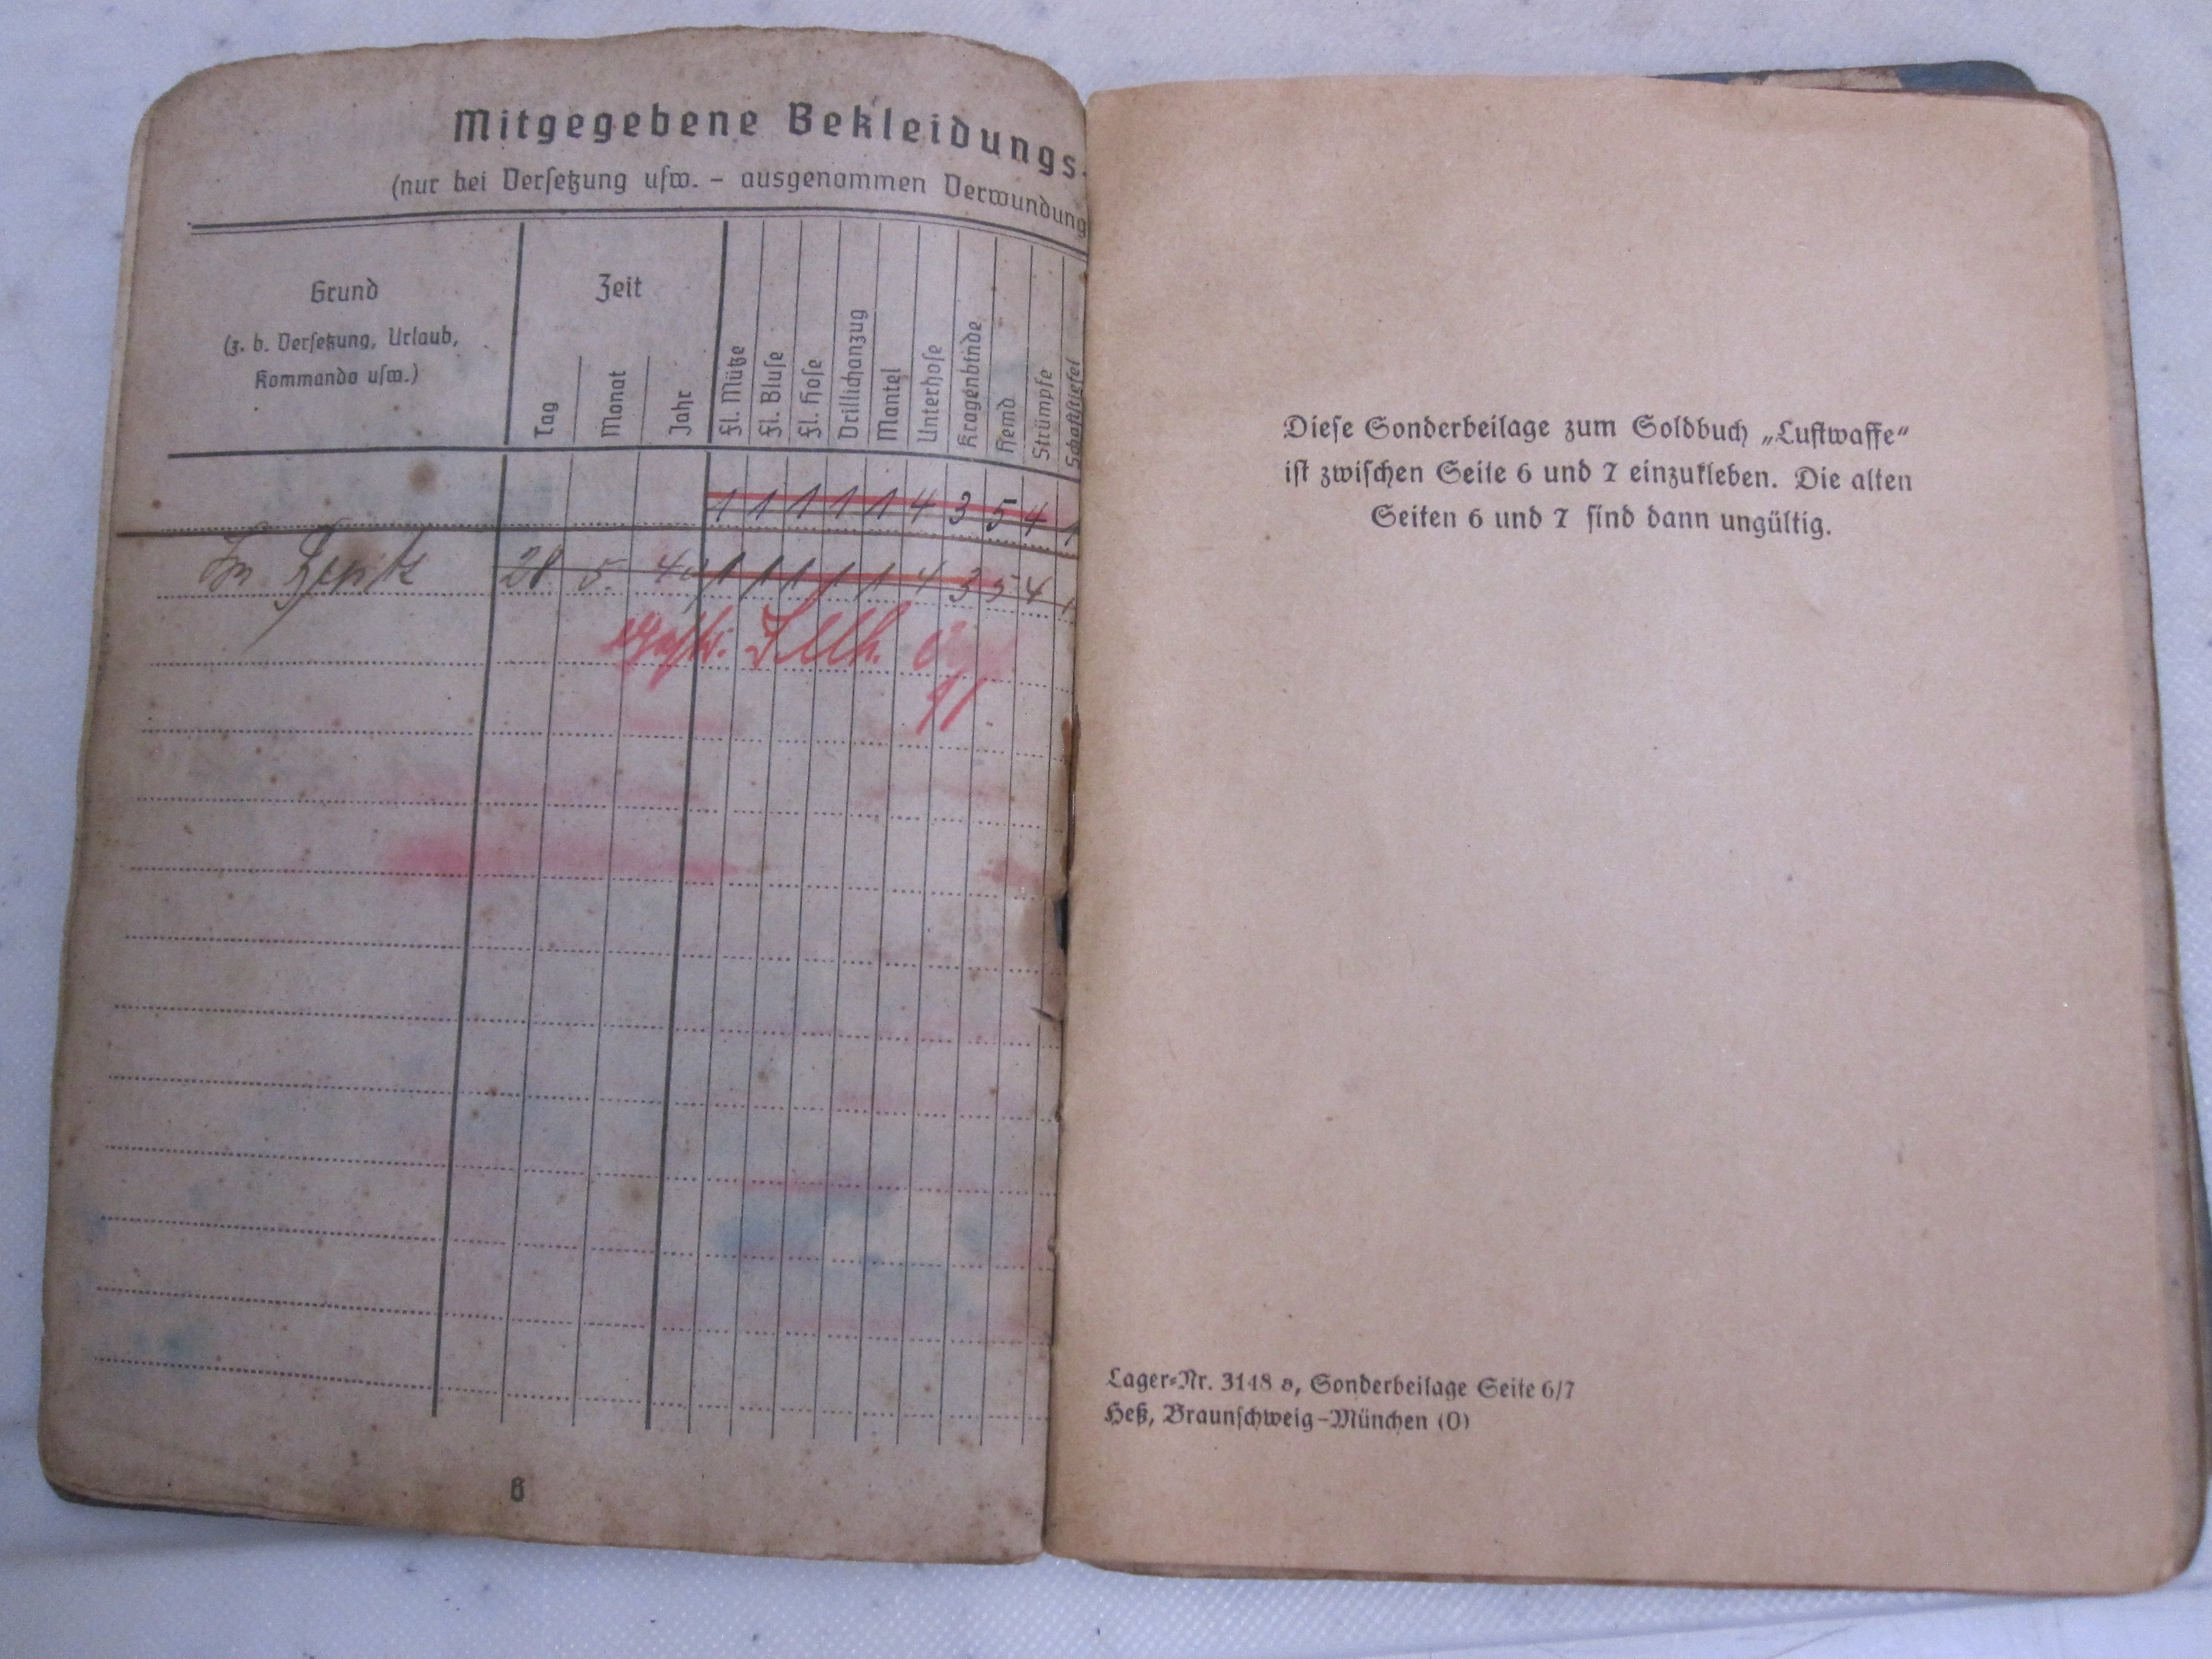 Mitgegebene Bekleidungs-
(nur bei Versetzung usw. – ausgenommen Verwundung
Grund
(z. b. Versetzung, Urlaub,
Kommando usw.)
Zeit
Tag
Monat
Jahr
Fl. Mütze
Fl. Bluse
Fl. Hose
Drillichanzug
Mantel
Unterhose
Kragenbinde
Hemd
Strümpfe
Schaftstiefel
1 1 1 1 1 4 3 5 4 1
Im Besitz 28. 5. 40 1 1 1 1 1 4 3 5 4 1
6
Diese Sonderbeilage zum Soldbuch „Luftwaffe“
ist zwischen Seite 6 und 7 einzukleben. Die alten
Seiten 6 und 7 sind dann ungültig.
Lager-Nr. 3148 a, Sonderbeilage Seite 6/7
Heß, Braunschweig-München (O)